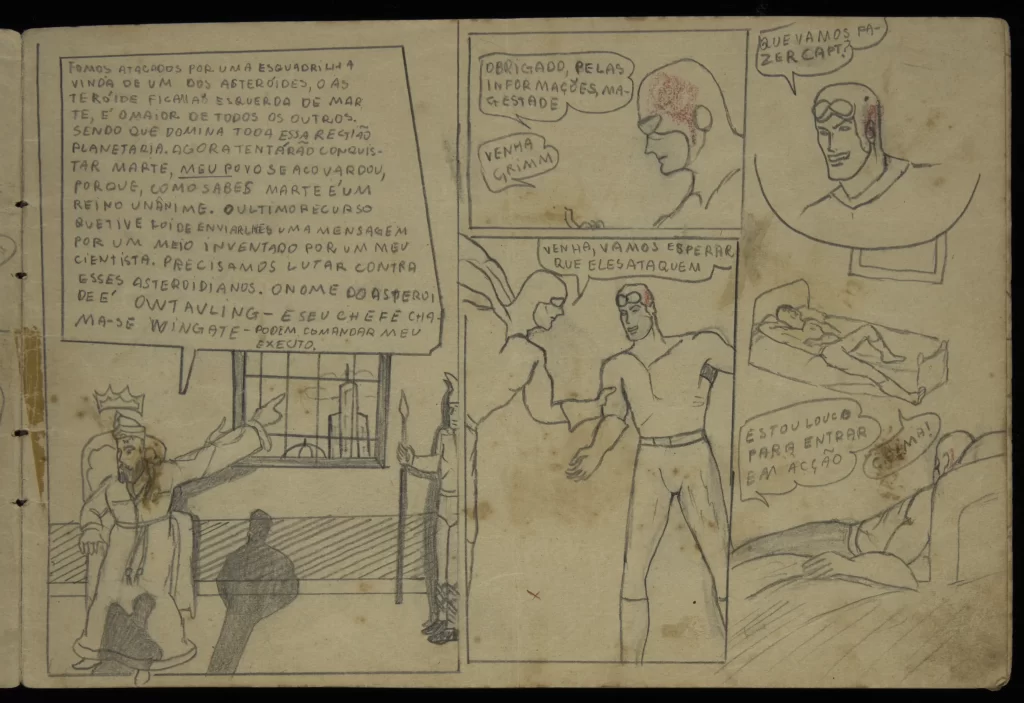 FOMOS ATACADOS POR UMA ESQUADRILHA
VINDA DE UM DOS ASTERÓIDES, O AS
TERÓIDE FICA Á ESQUERDA DE MAR
TE, E' O MAIOR DE TODOS OS OUTROS.
SENDO QUE DOMINA TODA ESSA REGIÃO
PLANETARIA. AGORA TENTARÃO CONQUIS-
TAR MARTE, MEU POVO SE ACOVARDOU,
PORQUE, COMO SABES MARTE E' UM
REINO UNÂNIME. O ULTIMO RECURSO
QUE TIVE FOI DE ENVIAR-LHES UMA MENSAGEM
POR UM MEIO INVENTADO POR UM MEU
CIENTISTA. PRECISAMOS LUTAR CONTRA
ESSES ASTEROIDIANOS. O NOME DO ASTEROI
DE E' OWTAULING - E SEU CHEFE CHA-
MA-SE WINGATE - PODEM COMANDAR MEU
EXECITO.
OBRIGADO, PELAS
INFORMAÇÕES, MA-
GESTADE
VENHA
GRIMM
VENHA, VAMOS ESPERAR
QUE ELES ATAQUEM
QUE VAMOS FA-
ZER CAPT?
ESTOU LOUCO
PARA ENTRAR
EM ACÇÃO